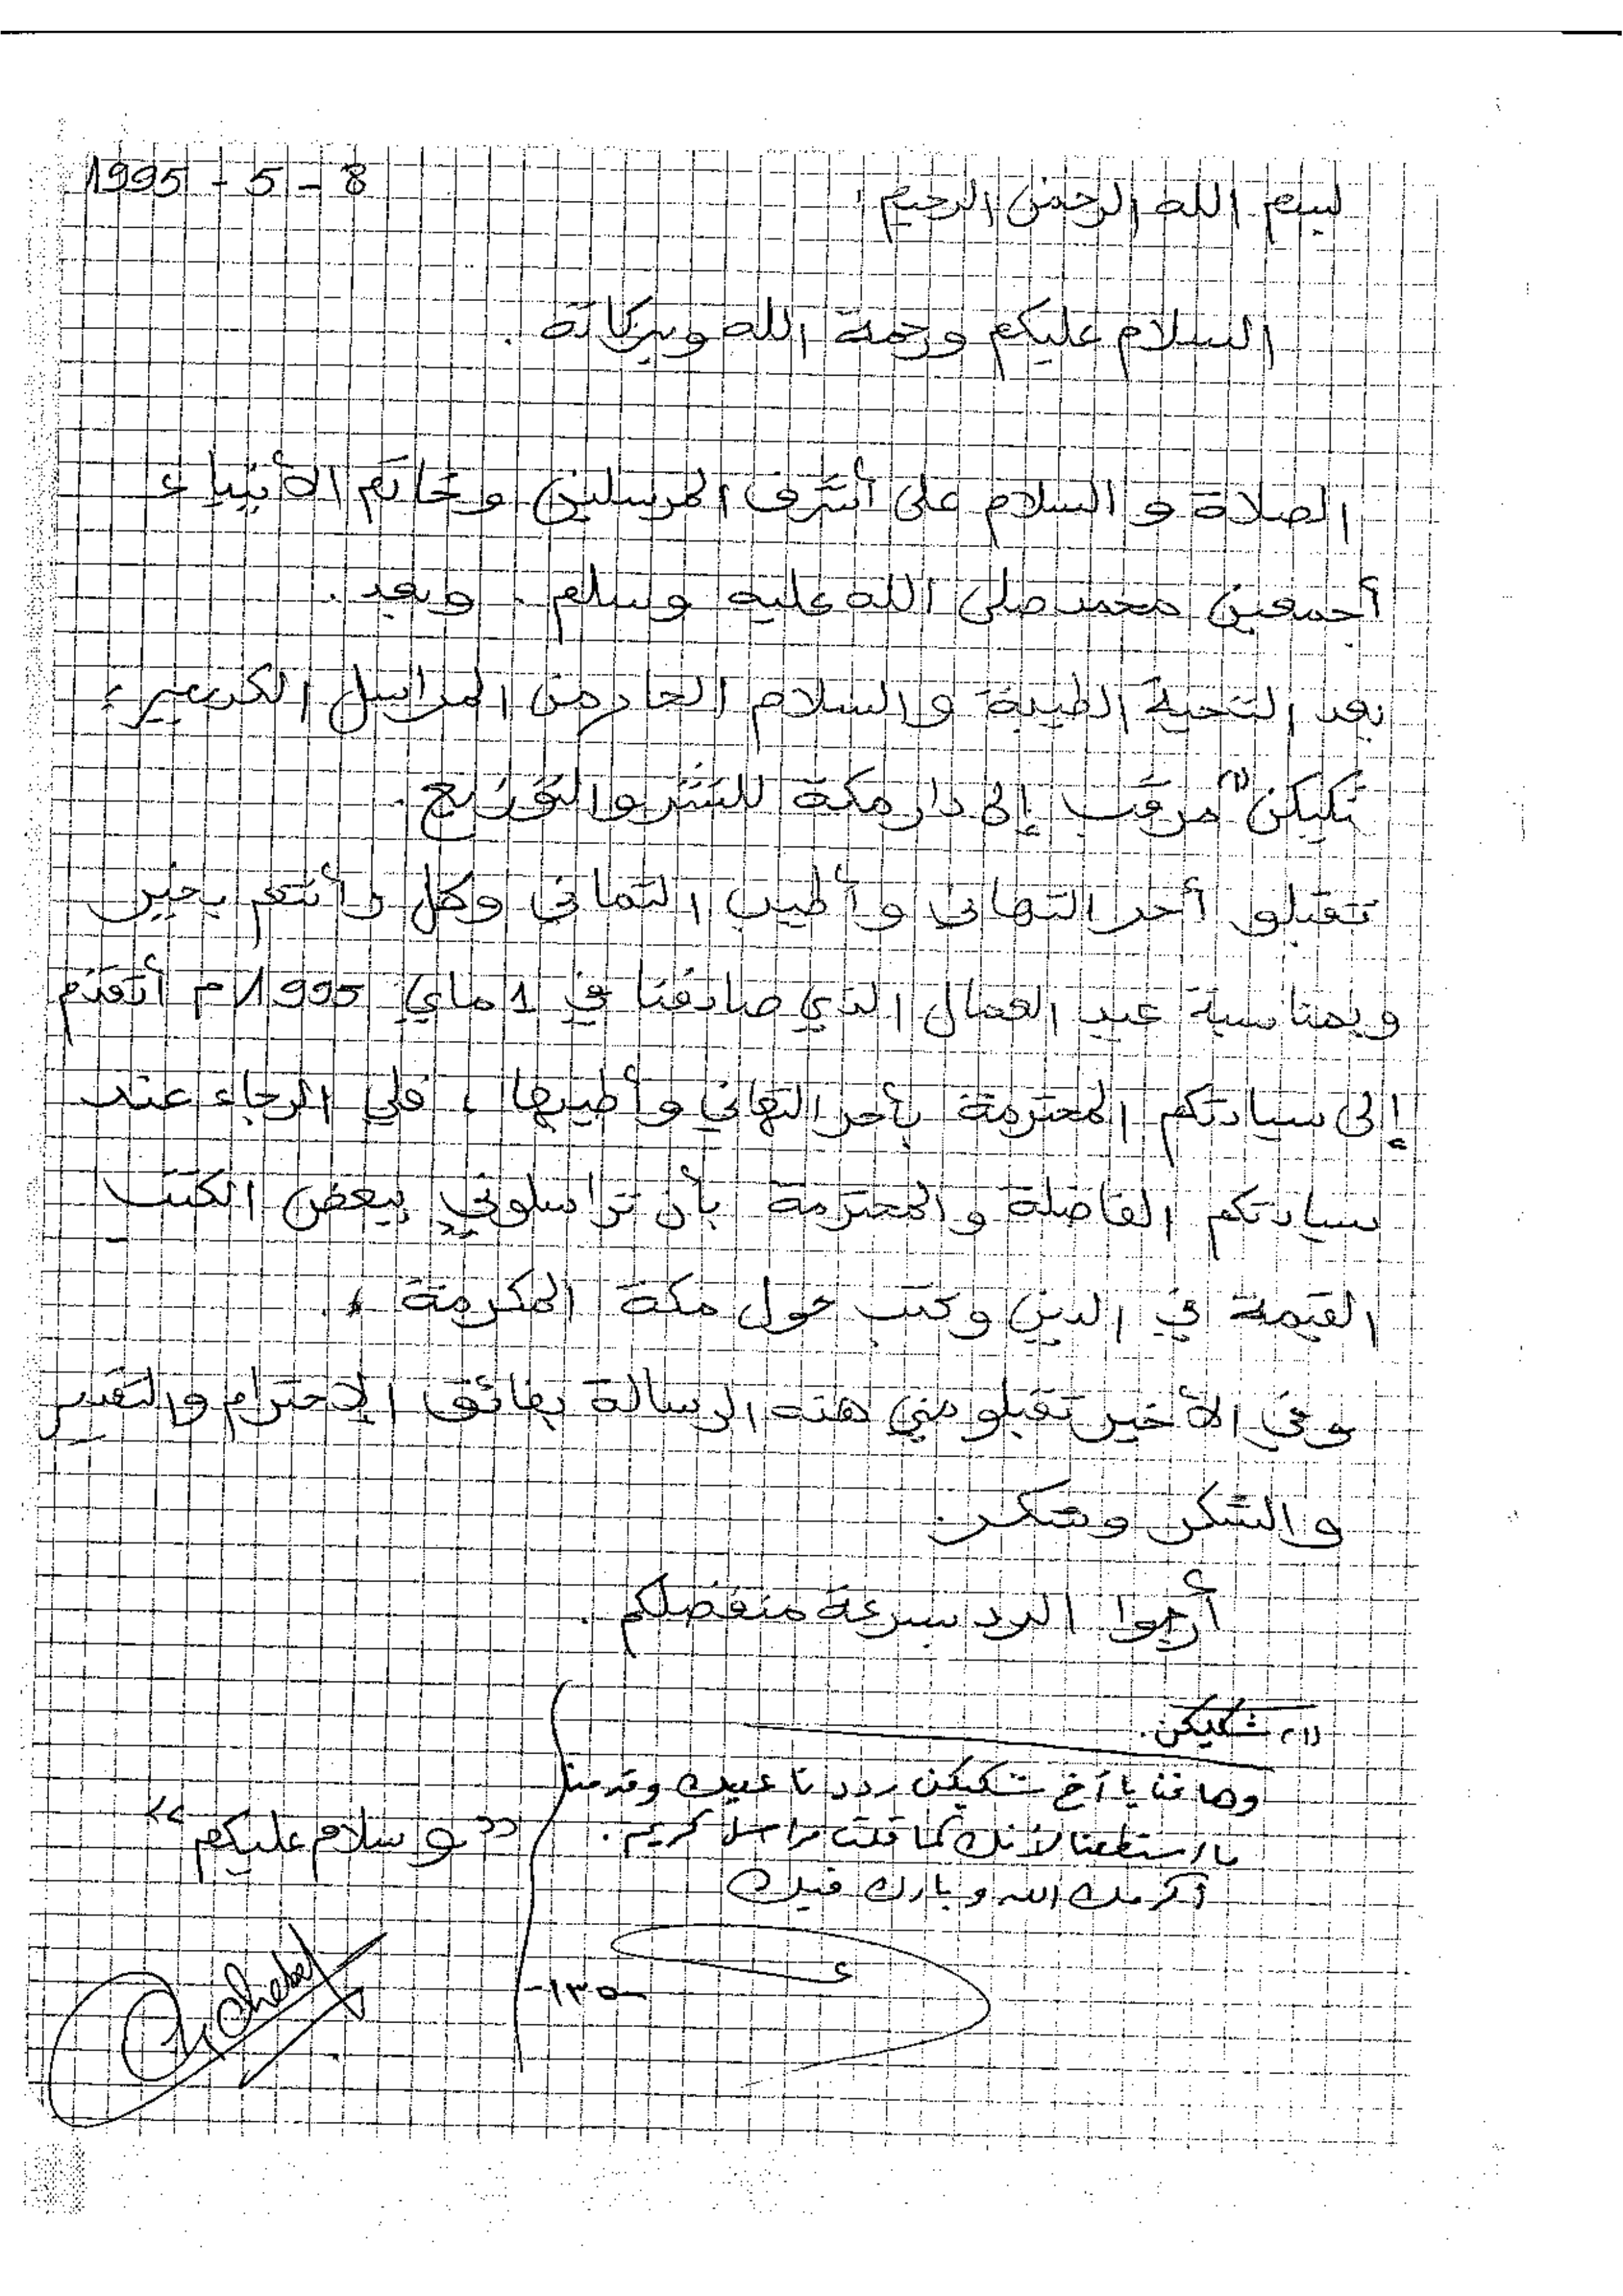 8 - 5 - 1995
بسم الله الرحمن الرحيم
السلام عليكم ورحمة الله وبركاته .
الصلاة و السلام على أشرف المرسلين و خاتم الأنبياء
أجمعين محمد صلى الله عليه وسلم . وبعد .
بعد التحية الطيبة والسلام الحار من المراسل الكريم ،
شكيكن (١) مرقب إلى دار مكة للنشر والتوزيع .
تتقبلو أحر التهاني و أطيب التماني وكل وأنتم بخير
وبمناسبة عيد العمال الذي صادفنا في 1 ماي 1995م أتقدم
إلى سيادتكم المحترمة بأحر التهاني وأطيبها ، فلي الرجاء عند
سيادتكم الفاضلة والمحترمة بأن تراسلوني ببعض الكتب
القيمة في الدين وكتب حول مكة المكرمة .
وفي الأخير تقبلو مني هذه الرسالة بفائق الإحترام والتقدير
و الشكر وشكر.
أرجوا الرد بسرعة منفضلكم .
(١) شكيكن .
وها نحن يا أخ شكيكن رددنا عليك وقدمنا
ما استطعنا لأنك كما قلت مراسل كريم .
أكرمك الله وبارك فيك
-١٣٥-
«و سلام عليكم»